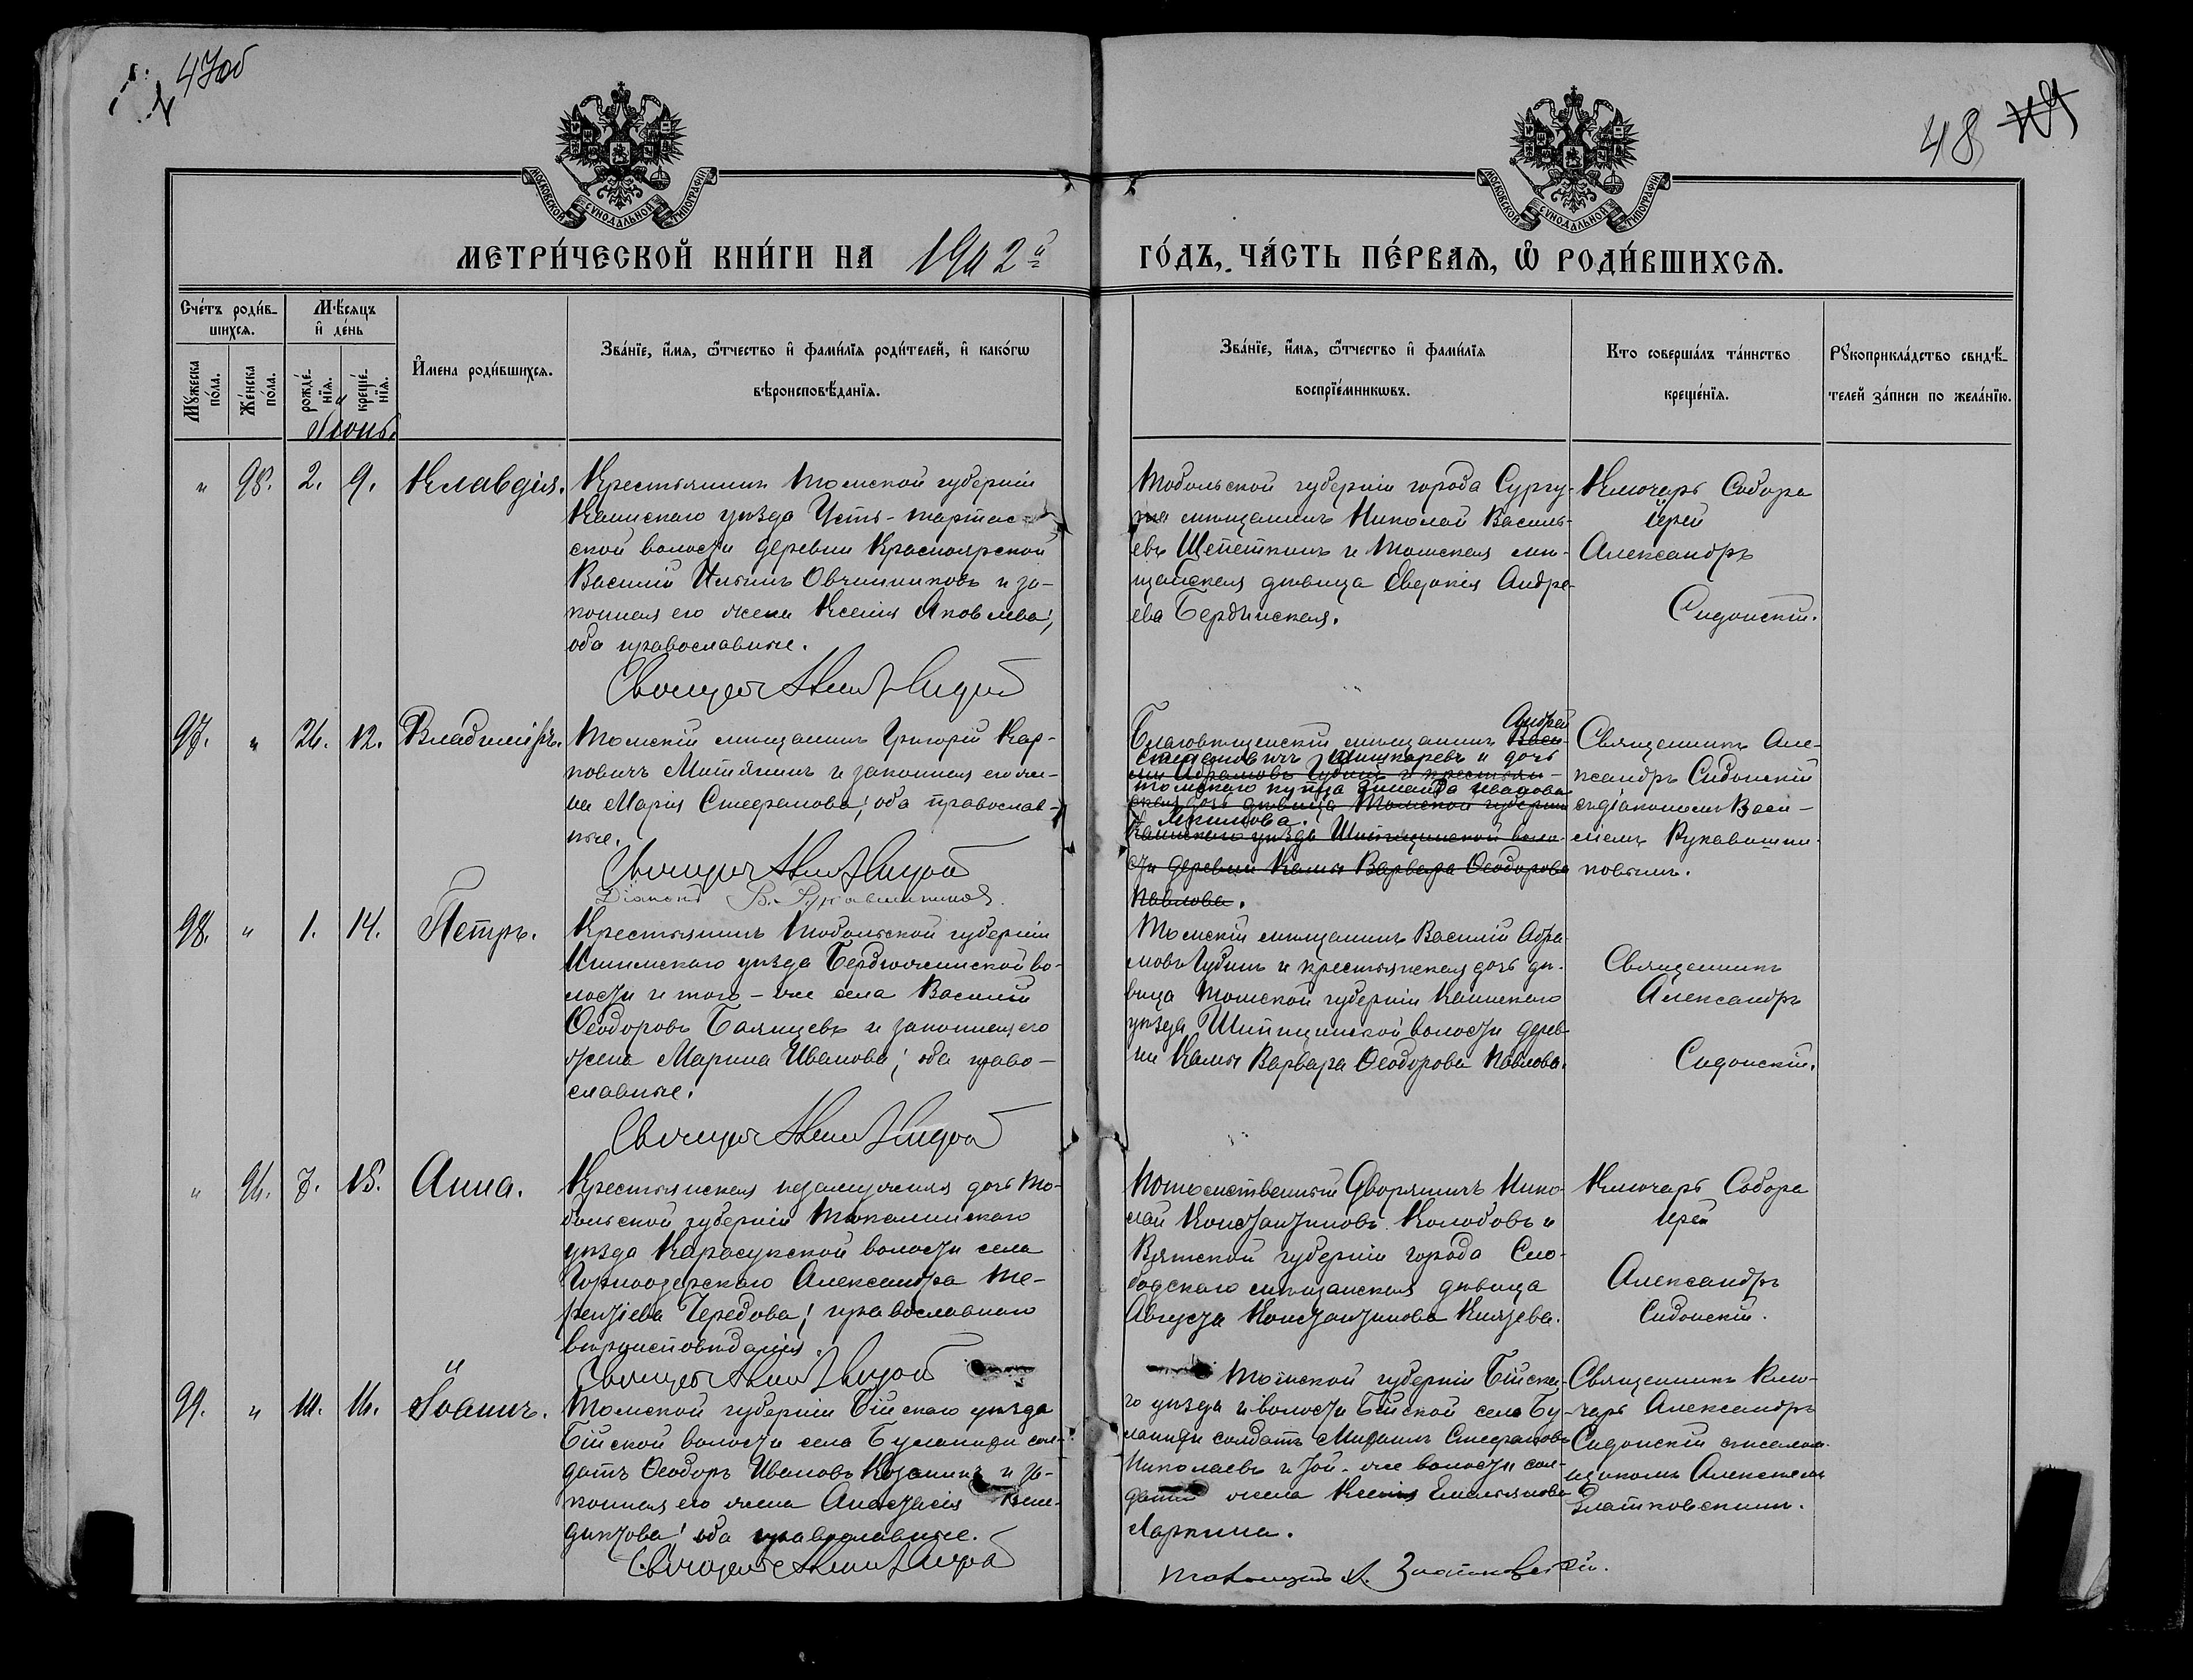 47об
48
МОСКОВСКОЙ СѴНОДАЛЬНОЙ ТИПОГРАФІИ
МОСКОВСКОЙ СѴНОДАЛЬНОЙ ТИПОГРАФІИ
МЕТРИ́ЧЕСКОЙ КНИ́ГИ НА 1902й
ГО́ДЪ, ЧА́СТЬ ПЕ́РВАЯ, Ѡ҆ РОДИ́ВШИХСЯ.
Сче́тъ роди́в-
шихся.
Мѣ́сяцъ
и҆ де́нь
Мꙋ́жеска по́ла.
Же́нска по́ла.
рожде́-
нїя.
креще́-
нїя.
И҆мена роди́вшихся.
Зва́нїе, и҆́мя, ѻ҆́тчество и҆ фами́лїя роди́телей, и҆ како́гѡ
вѣроисповѣ́данїя.
Зва́нїе, и҆́мя, ѻ҆́тчество и҆ фами́лїя
воспрїе́мникѡвъ.
Кто соверша́лъ та́инство
креще́нїя.
Рꙋкоприкла́дство свидѣ́-
телей за́писи по жела́нїю.
Іюнь.
" 98. 2. 9. Клавдія.
Крестьянинъ Томской губерніи
Каинскаго уѣзда Усть-тартас-
ской волости деревни Красноярской
Василій Ильинъ Овчинниковъ и за-
конная его жена Ксенія Яковлева;
оба православные.
Тобольской губерніи города Сургу-
та мѣщанинъ Николай Василь-
евъ Щепеткинъ и Томская мѣ-
щанская дѣвица Евдокія Андре-
ева Бердинская.
Ключарь Собора
Іерей
Александръ
Сидонскій.
97. " 26. 12. Владиміръ.
Томскій мѣщанинъ Григорій Кар-
повичъ Митякинъ и законная его же-
на Марія Стефанова; оба православ-
ные.
Діаконъ В. Рукавишниковъ.
Андрей
Благовѣщенскій мѣщанинъ Васи-
Стефановичъ Шишкаревъ и дочь
лій Абрамовъ Гудинъ и крестьян-
томскаго купца
ская дочь дѣвица Томской губерніи
Акимова.
Каинскаго уѣзда Шипицинской воло-
сти деревни Камы Варвара Ѳеодорова
Павлова.
Священникъ Але-
ксандръ Сидонскій
съ діакономъ Васи-
ліемъ Рукавишни-
ковымъ.
98. " 1. 14. Петръ.
Крестьянинъ Тобольской губерніи
Ишимскаго уѣзда Бердюжинской во-
лости и того-же села Василій
Ѳеодоровъ Балицевъ и законная его
жена Марина Иванова; оба право-
славные.
Томскій мѣщанинъ Василій Абра-
мовъ Гудинъ и крестьянская дочь дѣ-
вица Томской губерніи Каинскаго
уѣзда Шипицинской волости дерев-
ни Камы Варвара Ѳеодорова Павлова.
Священникъ
Александръ
Сидонскій.
" 94. 7. 15. Анна.
Крестьянская незамужняя дочь То-
больской губерніи Тюкалинскаго
уѣзда Карасукской волости села
Чернозерскаго Александра Те-
рентіева Чередова; православнаго
вѣроисповѣданія.
Потомственный Дворянинъ Нико-
лай Константиновъ Колобовъ и
Вятской губерніи города Сло-
бодскаго мѣщанская дѣвица
Августа Константинова Князева.
Ключарь Собора
Іерей
Александръ
Сидонскій.
99. " 11. 16. Іоаннъ.
Томской губерніи Бійскаго уѣзда
Бійской волости села Буланихи сол-
датъ Ѳеодоръ Ивановъ Казанинъ и за-
конная его жена Анастасія Бене-
диктова; оба православные.
Томской губерніи Бійска-
го уѣзда и волости Бійской села Бу-
ланихи солдатъ Михаилъ Стефановъ
Николаевъ и той-же волости сол-
датка жена Ксенія Емельянова
Ларкина.
Священникъ Клю-
чарь Александръ
Сидонскій съ псалом-
щикомъ Алексѣемъ
Златковскимъ.
Псаломщикъ А. Златковскій.